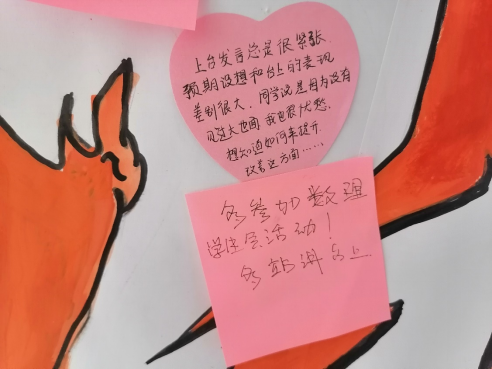 上台发言总是很紧张
预期设想和台上的表现
差别很大,同学说是因为没有
见过大世面,我也很忧愁,
想知道如何来提升
改善这方面……
多参加数理
学生会活动!
多站讲台上